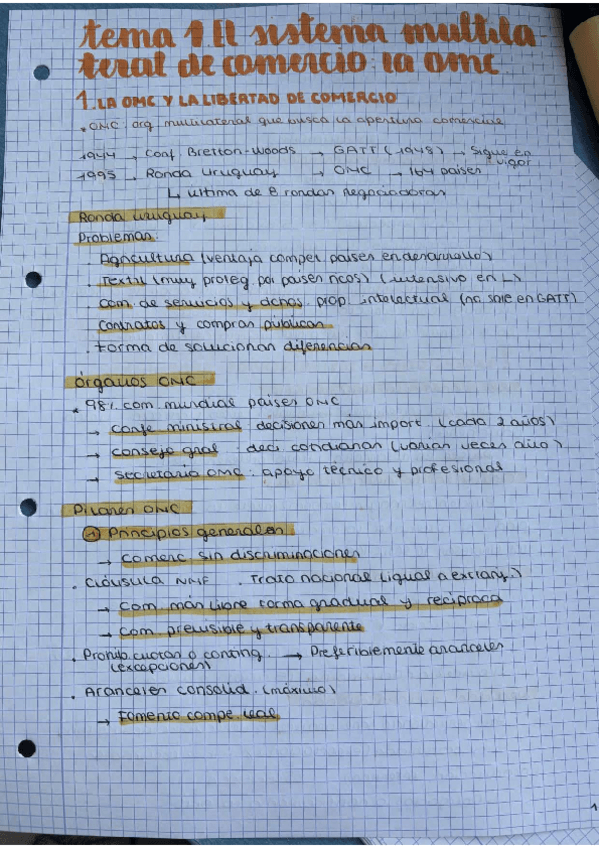 tema 1. El sistema multila
teral de comercio: la omc
1. LA OMC Y LA LIBERTAD DE COMERCIO
. OMC: org multilateral que busca la apertura comercial
1944 → Conf Bretton-Woods → GATT (1948) → Sigue en vigor
1995 → Ronda Uruguay → OMC → 164 países
↳ última de 8 rondas negociadoras
Ronda Uruguay
Problemas:
. Agricultura (ventaja compet países en desarrollo)
. Textil (muy proteg. por países ricos) (intensivo en L)
. Com de servicios y dchos. prop. intelectual (no sale en GATT)
. Contratos y compras públicas
. Forma de solucionar diferencias
Órganos OMC
. 98% com. mundial países OMC
→ Confe ministros: decisiones más import. (cada 2 años)
→ Consejo gral: deci cotidianas (varias veces año)
→ Secretaría OMC: apoyo técnico y profesional
Pilares OMC
1 Principios generales
→ Comerc sin discriminaciones
. Cláusula NMF . Trato nacional (igual a extranj.)
→ Com más libre forma gradual y recíproca
→ Com previsible y transparente
. Prohib. cuotas o conting. → Preferiblemente aranceles
(excepciones)
. Aranceles consolid. (máximo)
→ Fomento compe leal
1